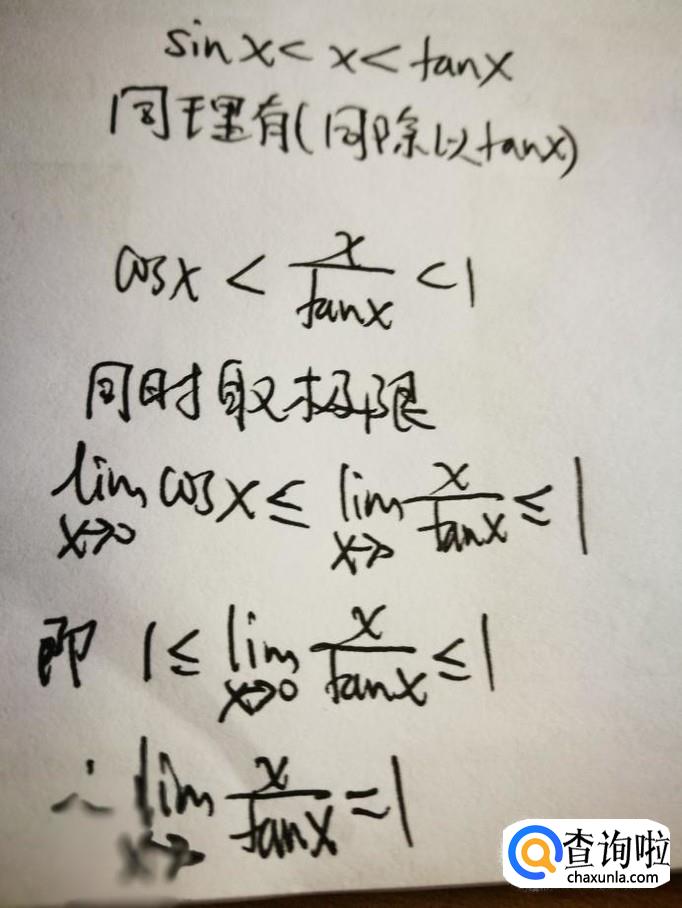 sinx < x < tanx
同理有(同除以tanx)
cosx < x/tanx < 1
同时取极限
lim x→0 cosx ≤ lim x→0 x/tanx ≤ 1
即 1 ≤ lim x→0 x/tanx ≤ 1
∴ lim x→0 x/tanx = 1
查询啦
chaxunla.com